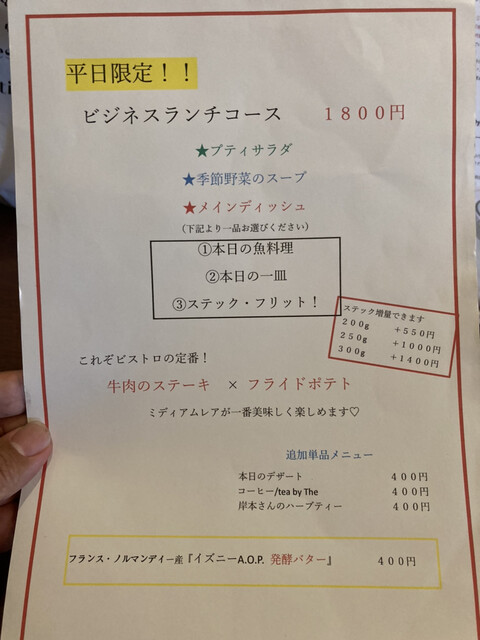 平日限定！！
ビジネスランチコース　１８００円
★プティサラダ
★季節野菜のスープ
★メインディッシュ
（下記より一品お選びください）
①本日の魚料理
②本日の一皿
③ステック・フリット！
ステック増量できます
２００g　＋５５０円
２５０g　＋１０００円
３００g　＋１４００円
これぞビストロの定番！
牛肉のステーキ　×　フライドポテト
ミディアムレアが一番美味しく楽しめます♡
追加単品メニュー
本日のデザート　４００円
コーヒー/tea by The　４００円
岸本さんのハーブティー　４００円
フランス・ノルマンディー産『イズニーA.O.P. 発酵バター』　４００円